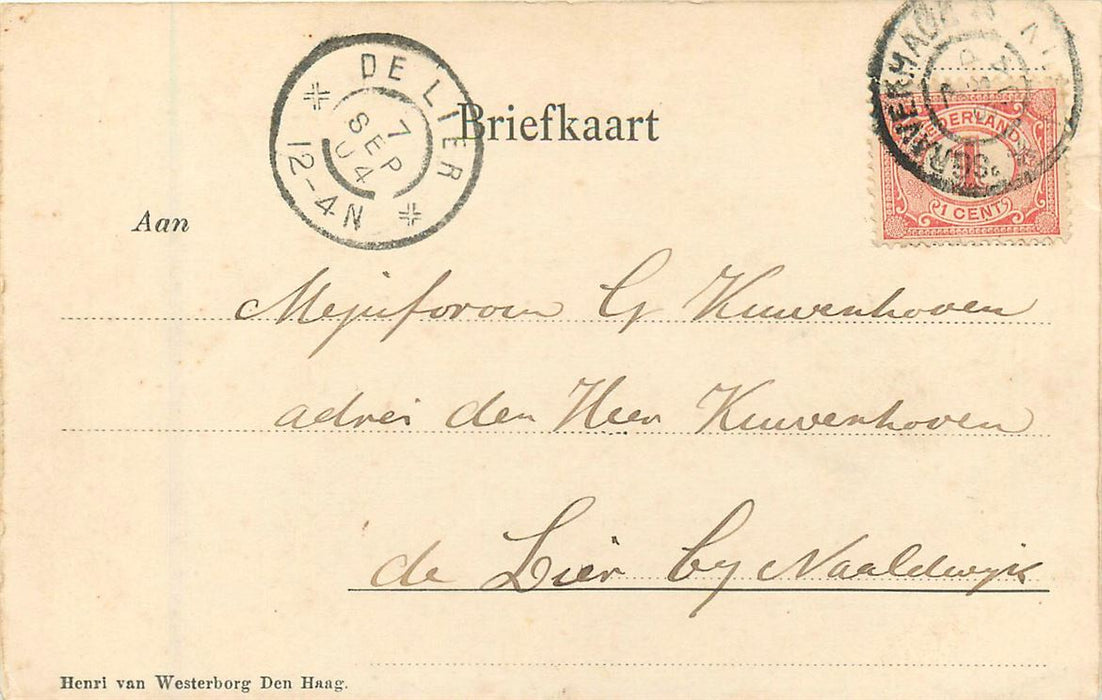 DE LIER
7
SEP
04
12-4N
Briefkaart
'SGRAVENHAGE
NEDERLAND
1
1 CENT
Aan
Mejufvrouw G Kuuvenhoven
adres den Heer Kuuvenhoven
de Lier by Naaldwijk
Henri van Westerborg Den Haag.